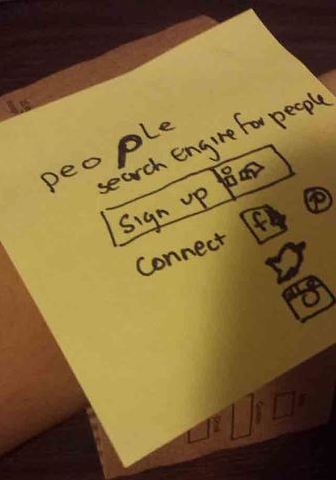 peoPLe
search Engine for people
Sign up in
Connect f